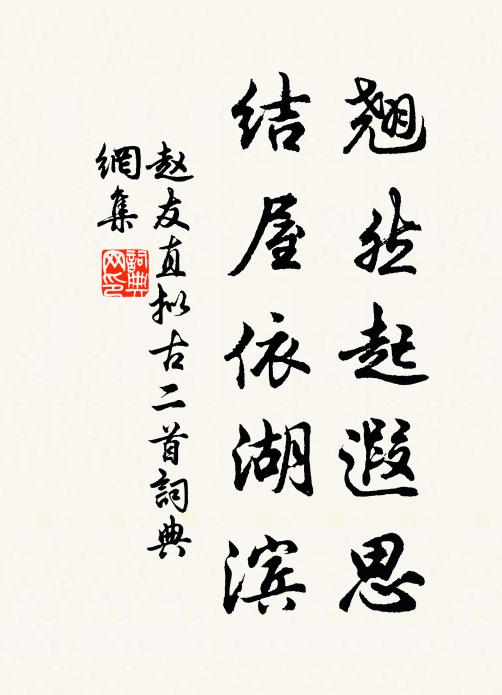 翘然起遐思
结屋依湖滨
赵友直拟古二首詞典
網集
詞典
网印